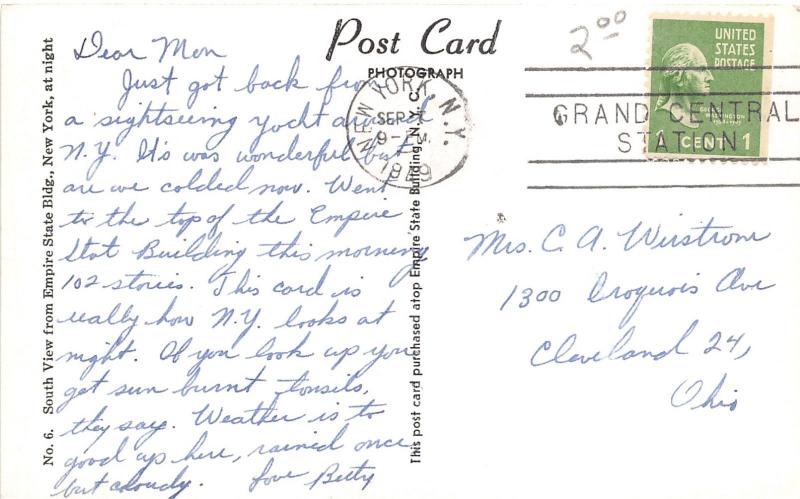 Post Card
PHOTOGRAPH
2.00
UNITED
STATES
POSTAGE
GEORGE
WASHINGTON
1 CENT 1
NEW YORK, N.Y.
SEP
9-PM
1949
GRAND CENTRAL
STATION
No. 6. South View from Empire State Bldg., New York, at night
Dear Mom
Just got back from
a sightseeing yocht around
N.Y. It's was wonderful but
are we colded now. Went
to the top of the Empire
Stat Building this morning
102 stories. This card is
really how N.Y. looks at
night. If you look up you
get sun burnt tonsils,
they say. Weather is to
good up here, rained once
but cloudy. Love Betty
This post card purchased atop Empire State Building, N.Y.C.
Mrs. C. A. Wirstrom
1300 Iroquois Ave
Cleveland 24,
Ohio